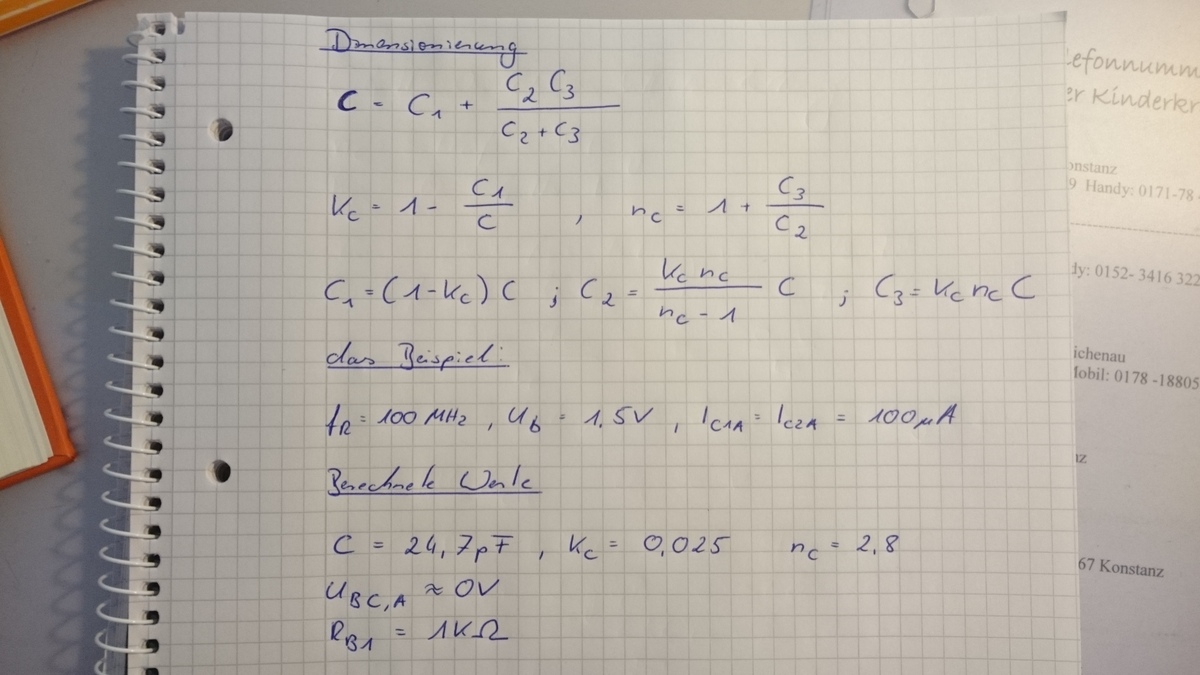 Dimensionierung
C = C1 + C2 C3 / C2 + C3
kc = 1 - C1 / C , nc = 1 + C3 / C2
C1 = (1 - kc) C ; C2 = kc nc / nc - 1 C ; C3 = kc nc C
das Beispiel:
fR = 100 MHz , Ub = 1.5V , IC1A = IC2A = 100µA
Berechnete Werte
C = 24,7pF , kc = 0,025 nc = 2,8
UBC,A ≈ 0V
RB1 = 1kΩ
efonnumm
er Kinderkr
onstanz
9 Handy: 0171-78
dy: 0152- 3416 322
ichenau
Mobil: 0178 -18805
nz
67 Konstanz